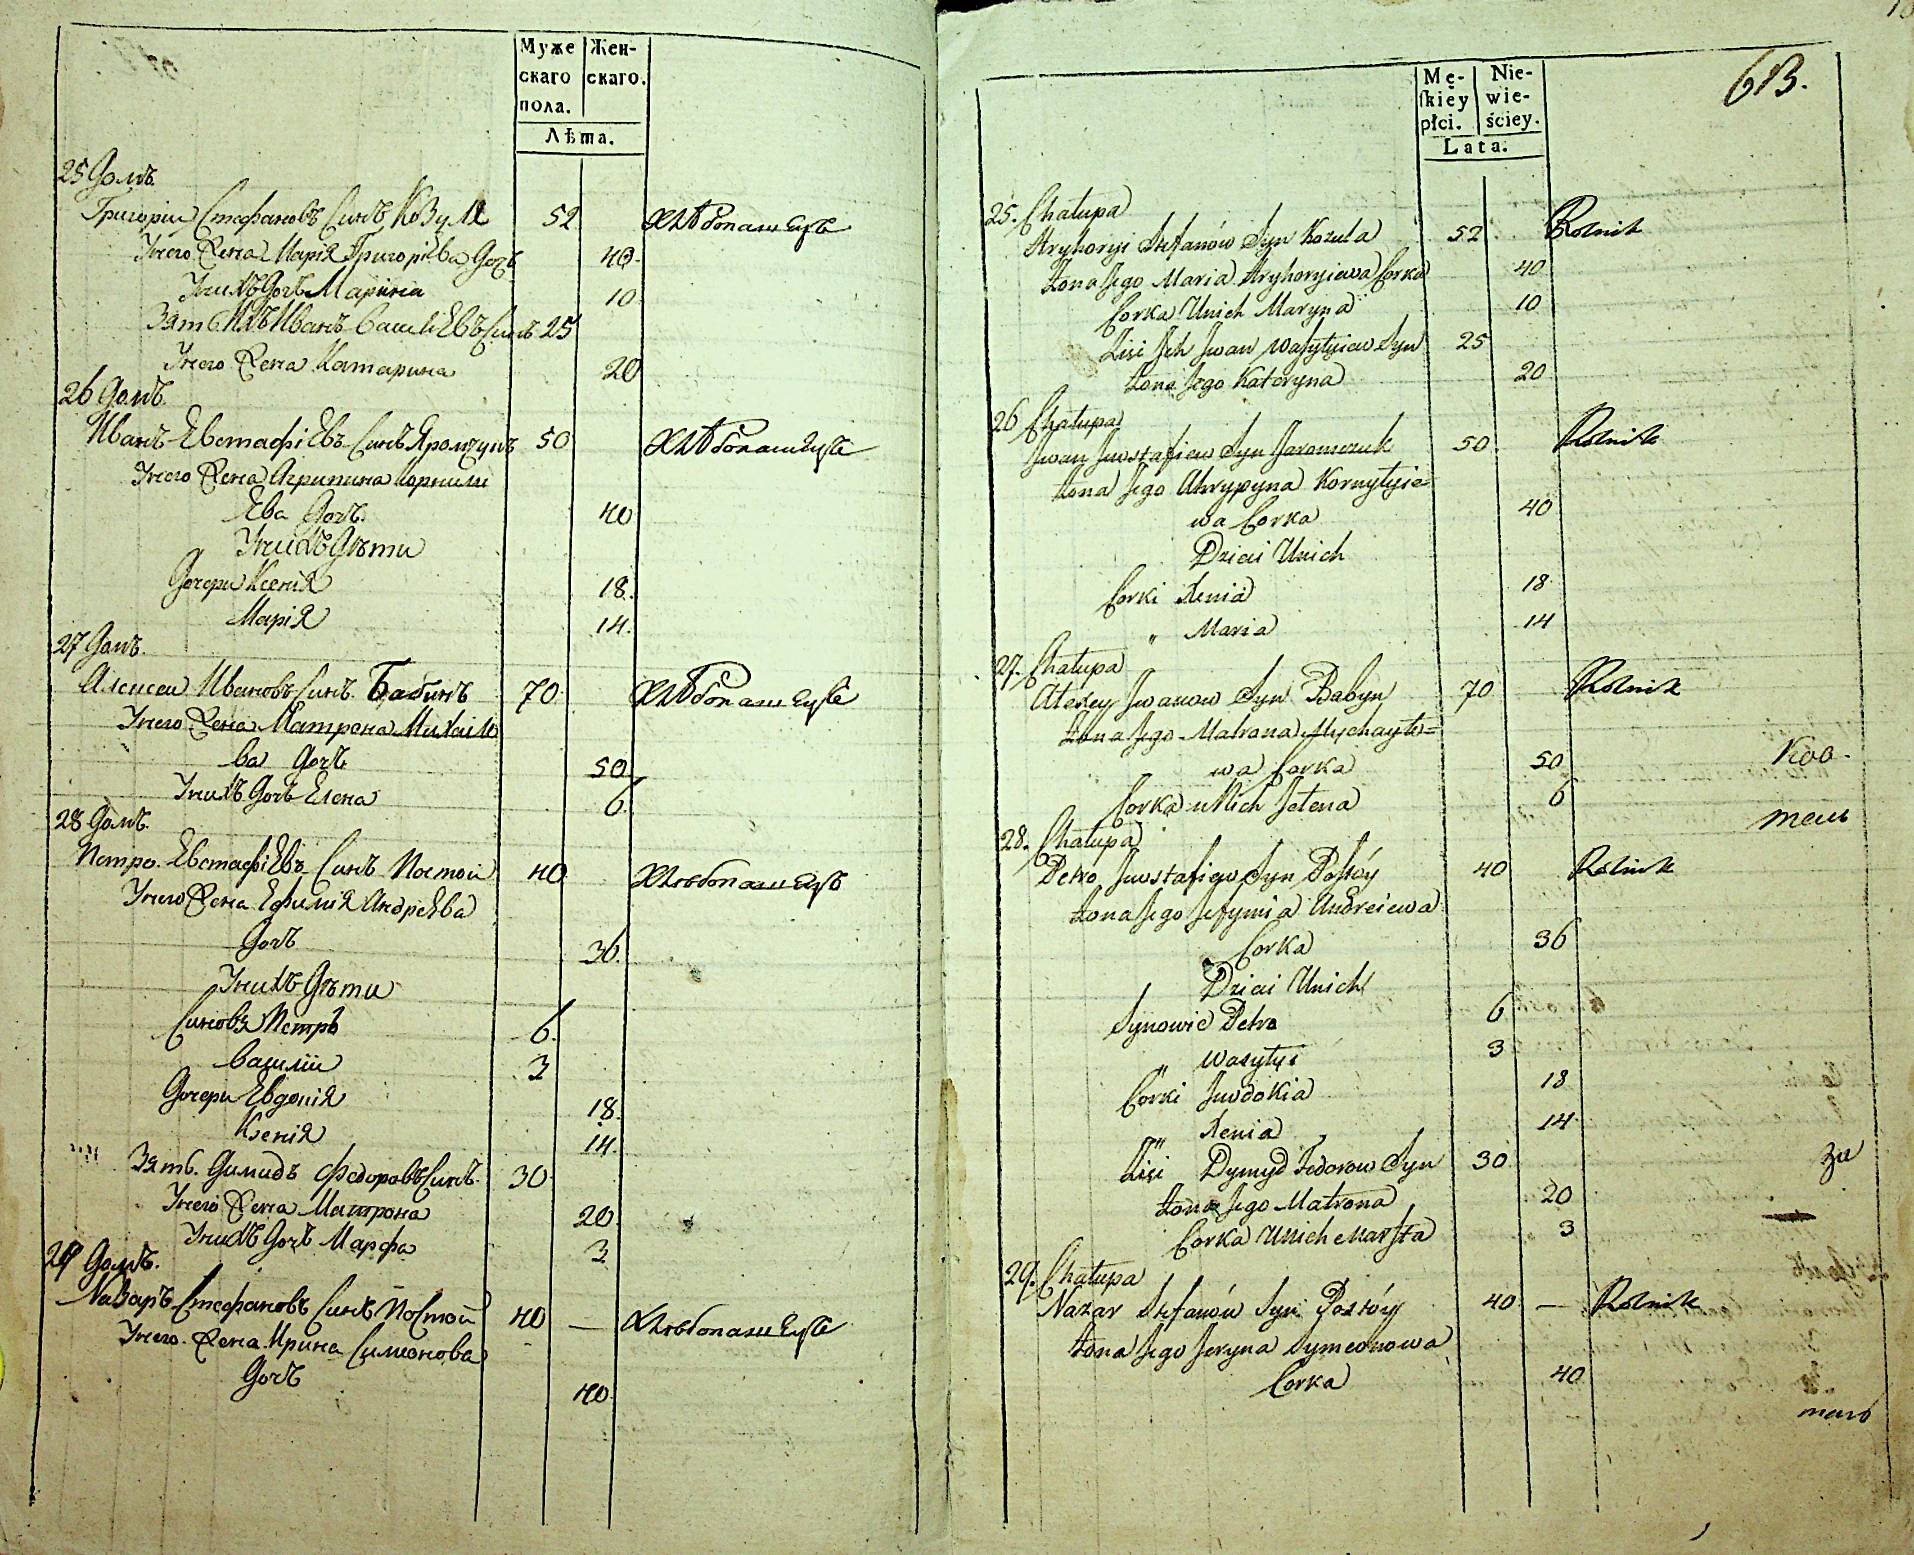 Муже
скаго
пола.
Жен-
скаго.
Лѣта.
25 Домъ.
Григорій Стефановъ Синъ Козуля 52 Хлѣбопашецъ
Унего Жена Марія Григоріева Дочь 40
Унихъ Дочь Марина 10
Зять Ихъ Иванъ Василіевъ Синъ 25
Унего Жена Катарина 20
26 Домъ.
Иванъ Евстафіевъ Синъ Яромчукъ 50 Хлѣбопашецъ
Унего Жена Агрипина Корнили
Ева Дочь. 40
Унихъ Дѣти
Дочери Ксенія 18.
Марія 14.
27 Домъ.
Алексеи Ивановъ Синъ Бабинъ 70 Хлѣбопашецъ
Унего Жена Матрона Михаило
ва Дочь 50
Унихъ Дочь Елена 6.
28 Домъ.
Петро Евстафіевъ Синъ Постои 40 Хлѣбопашецъ
Унего Жена Ефимія Андреева
Дочь 36.
Унихъ Дѣти
Синовя Петръ 6.
Василіи 3
Дочери Евдокія 18.
Ксенія 14.
Зять Димидъ Федоровъ Синъ 30
Унего Жена Матрона 20
Унихъ Дочь Марфа 3
29 Домъ.
Назаръ Стефановъ Синъ Постой 40 — Хлѣбопашецъ
Унего Жена Ирина Симионова
Дочь 40
613.
Mę-
skiey
płci.
Nie-
wie-
ściey.
Lata.
25. Chałupa
Hryhoryi Stefanów Syn Kozula 52 Rolnik
Żona Jego Maria Hryhoryiewa Corka 40
Corka Unich Maryna 10
Zięi Ich Jwan Wasylyiew Syn 25
Żona Jego Kateryna 20
26 Chałupa
Jwan Juwstafiew Syn Jaromczuk 50 Rolnik
Żona Jego Ahrypyna Kornyłyie=
wa Corka 40
Dzieci Unich
Corki Xenia 18
„ Maria 14
27. Chałupa
Alexey Jwanow Syn Babyn 70 Rolnik
Żona Jego Matrona Mychayło=
wa Corka 50
Corka u Nich Jelena 6
28. Chałupa
Petro Juwstafiew Syn Postóy 40 Rolnik
Żona Jego Jefymia Andreiewa
Corka 36
Dzieci Unich
Synowie Petro 6
„ Wasylyi 3
Corki Juwdokia 18
„ Xenia 14
Zięi Dymyd Fedorow Syn 30
Żona Jego Matrona 20
Corka Unich Marfta 3
29. Chałupa
Nazar Stefanów Syn Postóy 40 — Rolnik
Żona Jego Jeryna Symeonowa
Corka 40